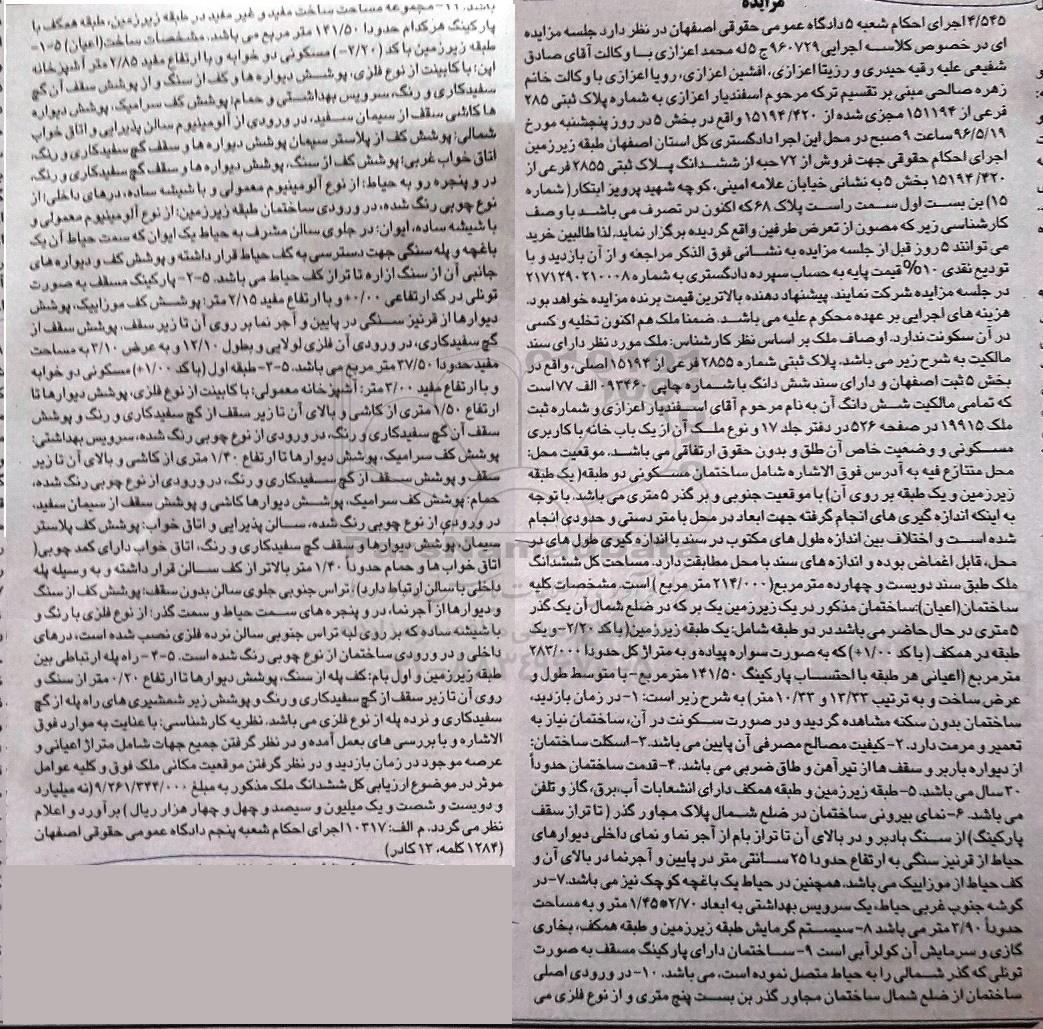 مزایده
۴/۵۴۵ اجرای احکام شعبه ۵ دادگاه عمومی حقوقی اصفهان در نظر دارد جلسه مزایده
ای در خصوص کلاسه اجرایی ۹۶۰۷۲۹ج ۵ له محمد اعزازی بـا وکالت آقای صادق
شفیعی علیه رقیه حیدری و رزیتا اعزازی، افشین اعزازی، رویا اعزازی با وکالت خانم
زهره صالحی مبنی بر تقسیم ترکه مرحوم اسفندیار اعزازی به شماره پلاک ثبتی ۲۸۵
فرعی از ۱۵۱۱۹۴ مجزی شده از ۱۵۱۹۴/۴۲۰ واقع در بخش ۵ در روز پنجشنبه مورخ
۹۶/۵/۱۹ ساعت ۹ صبح در محل این اجرا دادگستری کل استان اصفهان طبقه زیرزمین
اجرای احکام حقوقی جهت فروش از ۷۲ حبه از ششدانگ پلاک ثبتی ۲۸۵۵ فرعی از
۱۵۱۹۴/۴۲۰ بخش ۵ به نشانی خیابان علامه امینی، کوچه شهید پرویز ابتکار( شماره
۱۵) بن بست اول سمت راست پلاک ۶۸ که اکنون در تصرف می باشد با وصف
کارشناسی زیر که مصون از تعرض طرفین واقع گردیده برگزار نماید. لذا طالبین خرید
می توانند ۵ روز قبل از جلسه مزایده به نشانی فوق الذکر مراجعه و از آن بازدید و با
تودیع نقدی ۱۰% قیمت پایه به حساب سپرده دادگستری به شماره ۲۱۷۱۲۹۰۲۱۰۰۰۸
در جلسه مزایده شرکت نمایند. پیشنهاد دهنده بالاترین قیمت برنده مزایده خواهد بود.
هزینه های اجرایی بر عهده محکوم علیه می باشد. ضمنا ملک هم اکنون تخلیه و کسی
در آن سکونت ندارد. اوصاف ملک بر اساس نظر کارشناس: ملک مورد نظر دارای سند
مالکیت به شرح زیر می باشد. پلاک ثبتی شماره ۲۸۵۵ فرعی از ۱۵۱۹۴ اصلی، واقع در
بخش ۵ ثبت اصفهان و دارای سند شش دانگ با شماره چاپی ۰۹۳۴۶۰ الف ۷۷ است
که تمامی مالکیت شش دانگ آن به نام مرحوم آقای اسفندیار اعزازی و شماره ثبت
ملک ۱۹۹۱۵ در صفحه ۵۲۶ در دفتر جلد ۱۷ و نوع ملک آن از یک باب خانه با کاربری
مسکونی و وضعیت خاص آن طلق و بدون حقوق ارتفاقی می باشد. موقعیت محل:
محل متنازع فیه به آدرس فوق الاشاره شامل ساختمان مسکونی دو طبقه( یک طبقه
زیرزمین و یک طبقه بر روی آن) با موقعیت جنوبی و بر گذر ۵ متری می باشد. با توجه
به اینکه اندازه گیری های انجام گرفته جهت ابعاد در محل با متر دستی و حدودی انجام
شده است و اختلاف بین اندازه طول های مکتوب در سند با اندازه گیری طول های در
محل، قابل اغماض بوده و اندازه های سند با محل مطابقت دارد. مساحت کل ششدانگ
ملک طبق سند دویست و چهارده مترمربع( ۲۱۴/۰۰۰ متر مربع ) است. مشخصات کلیه
ساختمان(اعیان): ساختمان مذکور در یک زیرزمین یک بر که در ضلع شمال آن یک گذر
۵ متری در حال حاضر می باشد در دو طبقه شامل: یک طبقه زیرزمین( با کد ۲/۲۰-و یک
طبقه در همکف ( با کد ۱/۰۰+) که به صورت سواره پیاده و به متراژ کل حدودا ۲۸۳/۰۰۰
متر مربع (اعیانی هر طبقه با احتساب پارکینگ ۱۴۱/۵۰ متر مربع - با متوسط طول و
عرض ساخت و به ترتیب ۱۳/۳۳ و ۱۰/۳۳ متر) به شرح زیر است: ۱- در زمان بازدید،
ساختمان بدون سکنه مشاهده گردید و در صورت سکونت در آن، ساختمان نیاز به
تعمیر و مرمت دارد. ۲- کیفیت مصالح مصرفی آن پایین می باشد. ۳-اسکلت ساختمان:
از دیواره باربر و سقف ها از تیر آهن و طاق ضربی می باشد. ۴- قدمت ساختمان حدوداً
۳۰ سال می باشد. ۵- طبقه زیرزمین و طبقه همکف دارای انشعابات آب، برق، گاز و تلفن
می باشد. ۶-نمای بیرونی ساختمان در ضلع شمال پلاک مجاور گذر ( تا تراز سقف
پارکینگ) از سنگ بادبر و در بالای آن تا تراز بام از آجر نما و نمای داخلی دیوارهای
حیاط از قرنیز سنگی به ارتفاع حدودا ۲۵ سانتی متر در پایین و آجرنما در بالای آن و
کف حیاط از موزاییک می باشد. همچنین در حیاط یک باغچه کوچک نیز می باشد. ۷-در
گوشه جنوب غربی حیاط، یک سرویس بهداشتی به ابعاد ۲/۷۰*۱/۴۵ متر و به مساحت
حدوداً ۳/۹۰ متر می باشد ۸- سیستم گرمایش طبقه زیرزمین و طبقه همکف، بخاری
گازی و سرمایش آن کولر آبی است ۹- ساختمان دارای پارکینگ مسقف به صورت
تونلی که گذر شمالی را به حیاط متصل نموده است، می باشد. ۱۰-در ورودی اصلی
ساختمان از ضلع شمال ساختمان مجاور گذر بن بست پنج متری و از نوع فلزی می
باشد. ۱۱- مجموعه مساحت ساخت مفید و غیر مفید در طبقه زیرزمین، طبقه همکف با
پارکینگ هر کدام حدودا ۱۴۱/۵۰ متر مربع می باشد. مشخصات ساخت(اعیان) ۵-۱-
طبقه زیرزمین با کد (۲/۲۰-) مسکونی دو خوابه و با ارتفاع مفید ۲/۸۵ متر آشپزخانه
اپن: با کابینت از نوع فلزی، پوشش دیواره ها و کف از سنگ و از پوشش سقف آن گچ
سفیدکاری و رنگ، سرویس بهداشتی و حمام: پوشش کف سرامیک، پوشش دیواره
ها کاشی سقف از سیمان سفید، در ورودی از آلومینیوم سالن پذیرایی و اتاق خواب
شمالی: پوشش کف از پلاستر سیمان پوشش دیواره ها و سقف گچ سفیدکاری و رنگ،
اتاق خواب غربی: پوشش کف از سنگ، پوشش دیواره ها و سقف گچ سفیدکاری و رنگ،
در و پنجره رو به حیاط: از نوع آلومینیوم معمولی و با شیشه ساده، درهای داخلی: از
نوع چوبی رنگ شده، در ورودی ساختمان طبقه زیرزمین: از نوع آلومینیوم معمولی و
با شیشه ساده، ایوان: در جلوی سالن مشرف به حیاط یک ایوان که سمت حیاط آن یک
باغچه و پله سنگی جهت دسترسی به کف حیاط قرار داشته و پوشش کف و دیواره های
جانبی آن از سنگ ازاره تا تراز کف حیاط می باشد. ۵-۲- پارکینگ مسقف به صورت
تونلی در کد ارتفاعی ۰/۰۰+ و با ارتفاع مفید ۲/۱۵ متر: پوشش کف موزاییک، پوشش
دیوارها از قرنیز سنگی در پایین و آجر نما بر روی آن تا زیر سقف، پوشش سقف از
گچ سفیدکاری، در ورودی آن فلزی لولایی و بطول ۱۲/۱۰ و به عرض ۳/۱۰ به مساحت
مفید حدودا ۳۷/۵۰ متر مربع می باشد. ۵-۳- طبقه اول (با کد ۱/۰۰+) مسکونی دو خوابه
و با ارتفاع مفید ۳/۰۰ متر: آشپزخانه معمولی: با کابینت از نوع فلزی، پوشش دیوارها تا
ارتفاع ۱/۵۰ متری از کاشی و بالای آن تا زیر سقف از گچ سفیدکاری و رنگ و پوشش
سقف آن گچ سفیدکاری و رنگ، در ورودی از نوع چوبی رنگ شده، سرویس بهداشتی:
پوشش کف سرامیک، پوشش دیوارها تا ارتفاع ۱/۴۰ متری از کاشی و بالای آن تا زیر
سقف و پوشش سقف از گچ سفیدکاری و رنگ، در ورودی از نوع چوبی رنگ شده،
حمام: پوشش کف سرامیک، پوشش دیوارها کاشی و پوشش سقف از سیمان سفید،
در ورودی از نوع چوبی رنگ شده، سالن پذیرایی و اتاق خواب: پوشش کف پلاستر
سیمان، پوشش دیوارها و سقف گچ سفیدکاری و رنگ، اتاق خواب دارای کمد چوبی(
اتاق خواب ها و حمام حدوداً ۱/۴۰ متر بالاتر از کف سالن قرار داشته و به وسیله پله
داخلی با سالن ارتباط دارد) ، تراس جنوبی جلوی سالن بدون سقف: پوشش کف از سنگ
و دیوارها از آجرنما، در و پنجره های سمت حیاط و سمت گذر: از نوع فلزی با رنگ و
با شیشه ساده که بر روی لبه تراس جنوبی سالن نرده فلزی نصب شده است، درهای
داخلی و در ورودی ساختمان از نوع چوبی رنگ شده است. ۵-۴- راه پله ارتباطی بین
طبقه زیرزمین و اول بام: کف پله از سنگ، پوشش دیوارها تا ارتفاع ۰/۲۰ متر از سنگ و
روی آن تا زیر سقف از گچ سفیدکاری و رنگ و پوشش زیر شمشیری های راه پله از گچ
سفیدکاری و نرده پله از نوع فلزی می باشد. نظریه کارشناسی: با عنایت به موارد فوق
الاشاره و با بررسی های بعمل آمده و در نظر گرفتن جمیع جهات شامل متراژ اعیانی و
عرصه موجود در زمان بازدید و در نظر گرفتن موقعیت مکانی ملک فوق و کلیه عوامل
موثر در موضوع ارزیابی کل ششدانگ ملک مذکور به مبلغ ۹/۲۶۱/۳۴۴/۰۰۰(نه میلیارد
و دویست و شصت و یک میلیون و سیصد و چهل و چهار هزار ریال ) برآورد و اعلام
نظر می گردد. م الف: ۱۰۳۱۷ اجرای احکام شعبه پنجم دادگاه عمومی حقوقی اصفهان
(۱۲۸۴ کلمه، ۱۳ کادر)